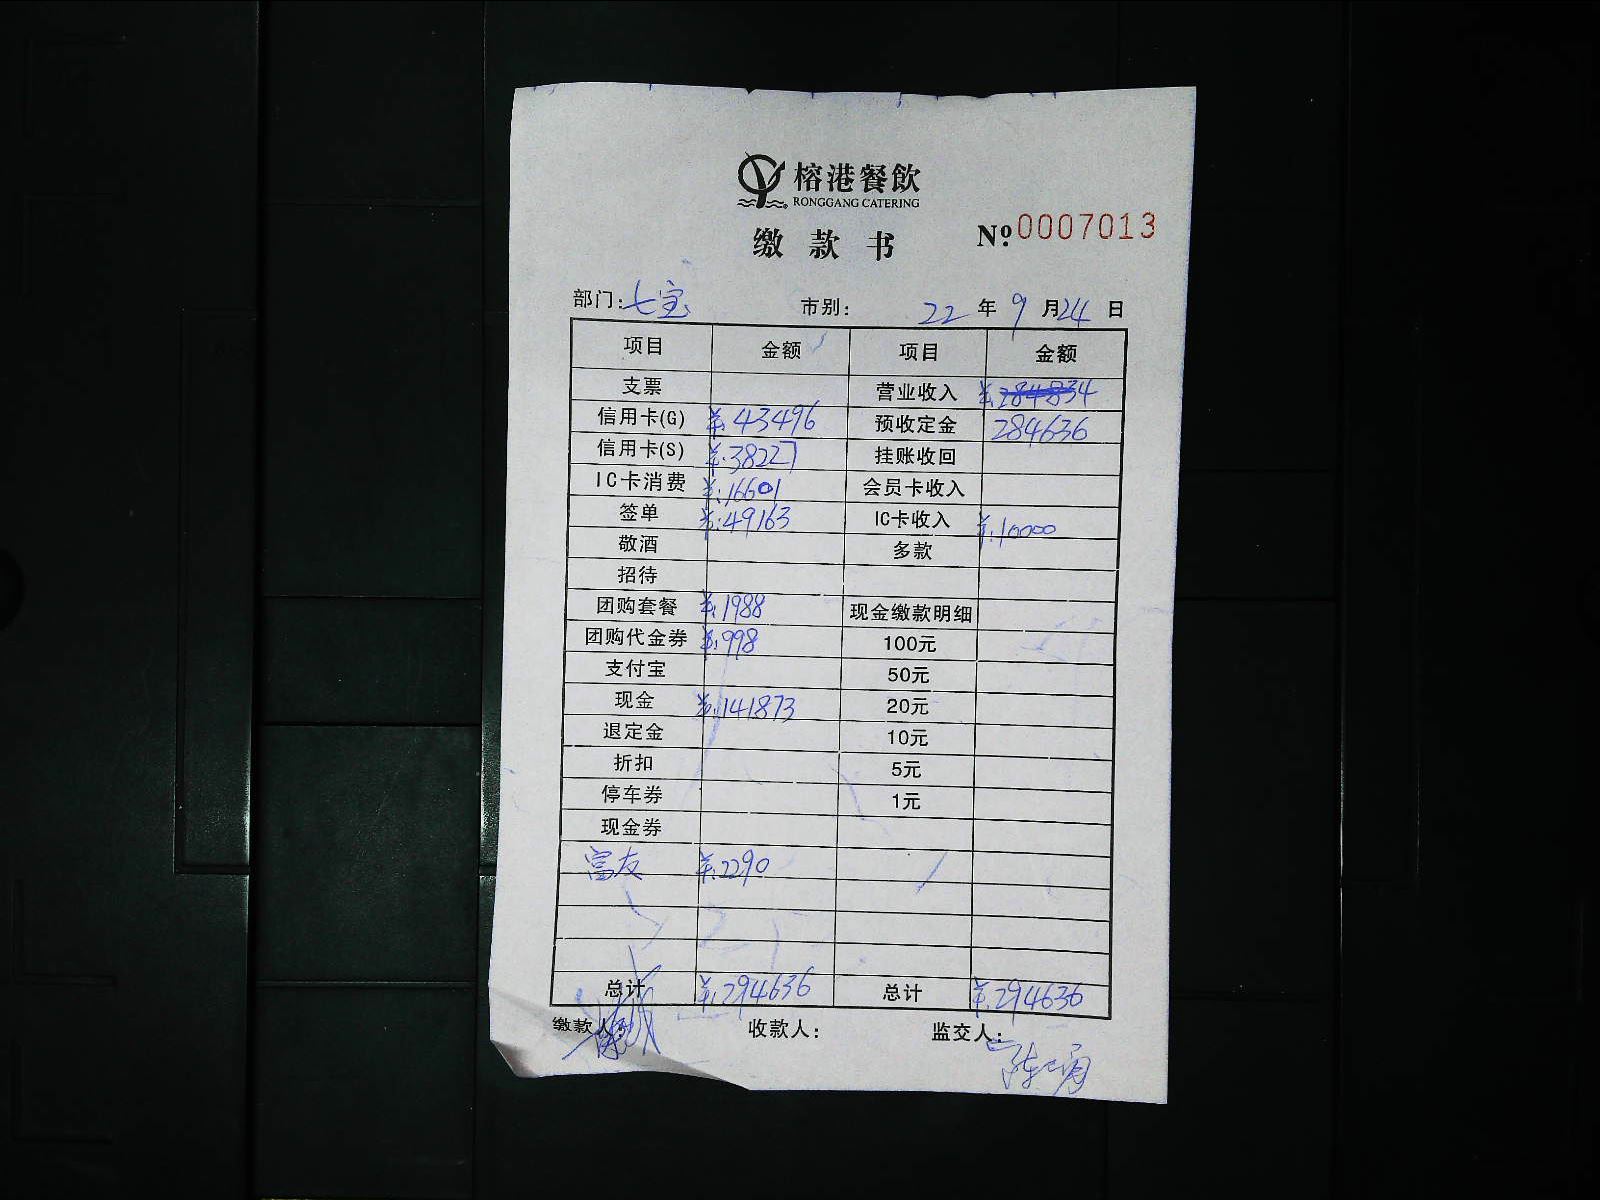 榕港餐飲
RONGGANG CATERING
缴款书
№0007013
部门:七宝 市别: 22年9月24日
项目 金额 项目 金额
支票 营业收入 ¥:284834
信用卡(G) ¥:43496 预收定金 284636
信用卡(S) ¥:38227 挂账收回
IC卡消费 ¥:16601 会员卡收入
签单 ¥:49163 IC卡收入 ¥:10000
敬酒 多款
招待
团购套餐 ¥:1988 现金缴款明细
团购代金券 ¥:998 100元
支付宝 50元
现金 ¥:141873 20元
退定金 10元
折扣 5元
停车券 1元
现金券
富友 ¥:2290
总计 ¥:294636 总计 ¥:294636
缴款人: 收款人: 监交人: